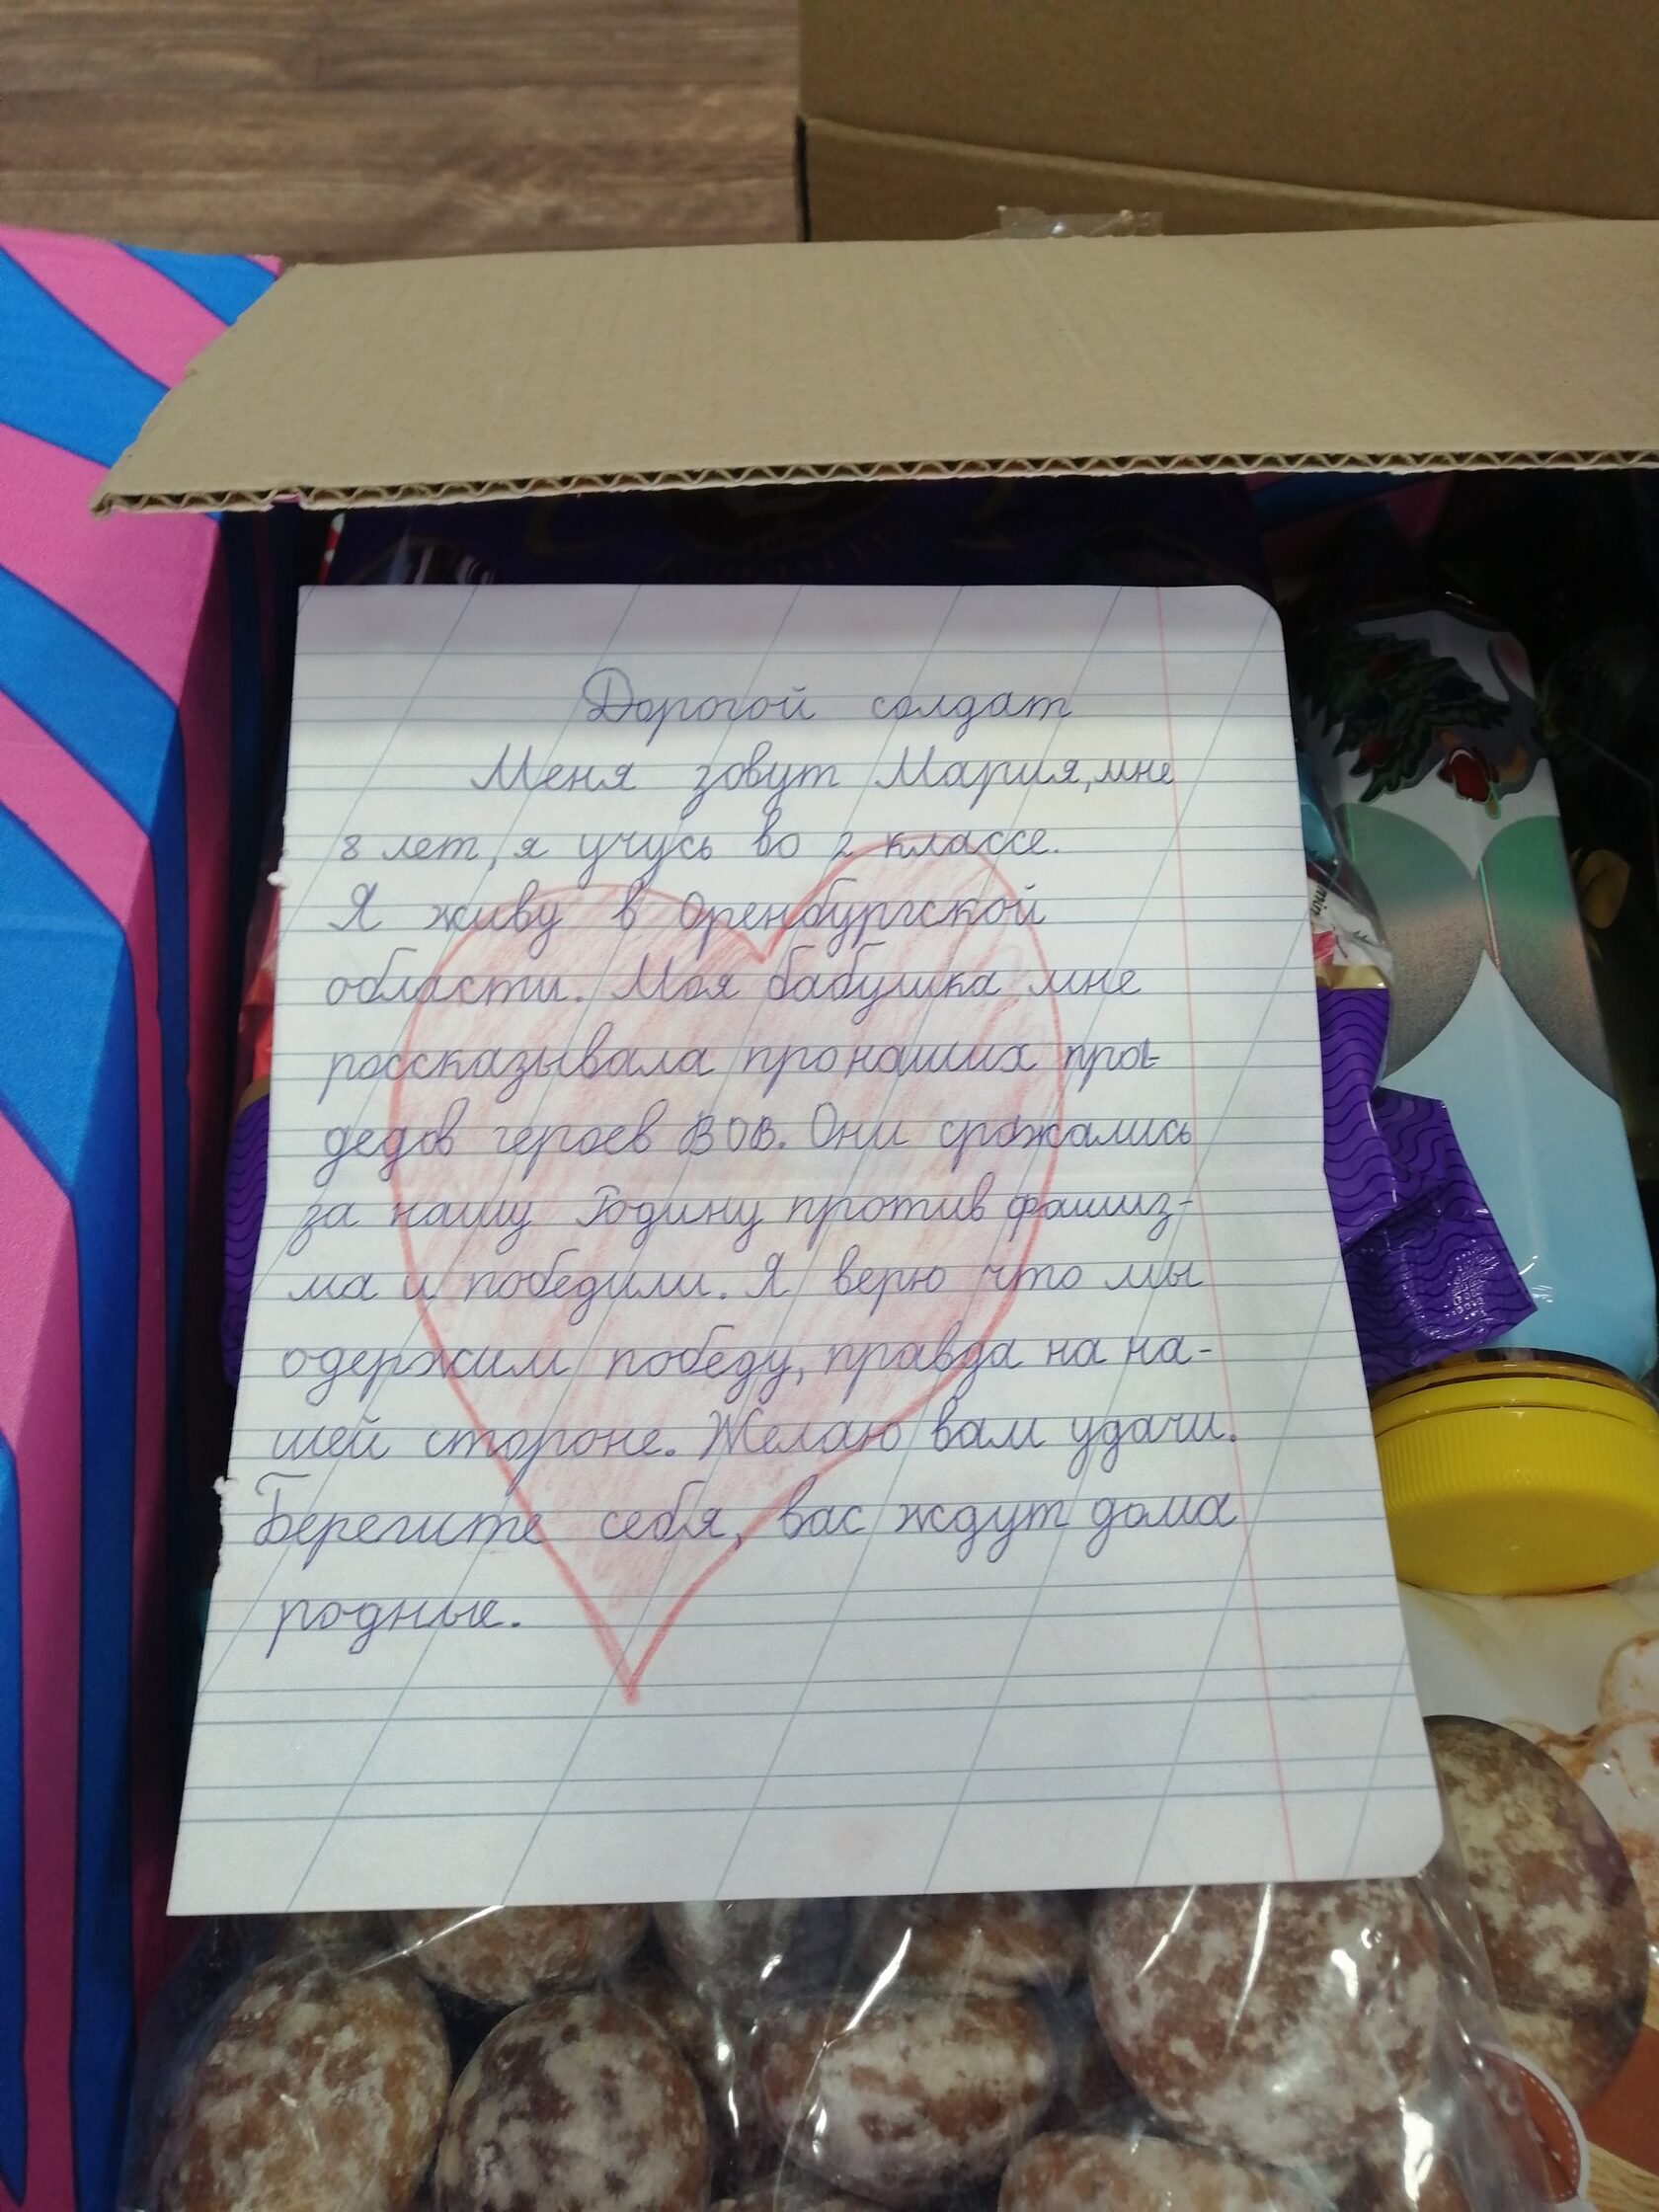 Дорогой солдат
Меня зовут Мария, мне
8 лет, я учусь во 2 классе.
Я живу в Оренбургской
области. Моя бабушка мне
рассказывала про наших пра-
дедов героев ВОВ. Они сражались
за нашу Родину против фашиз-
ма и победили. Я верю что мы
одержим победу, правда на на-
шей стороне. Желаю вам удачи.
Берегите себя, вас ждут дома
родные.